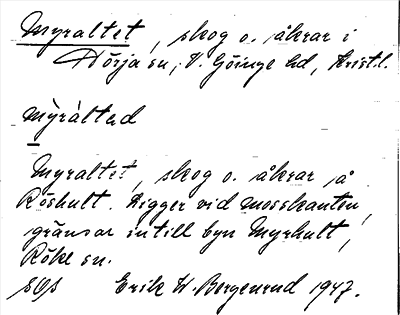 Myraltet, skog o. åkrar i
Hörja sn, V. Göinge hd, Krist.l.
mỳràltəd
Myraltet, skog o. åkrar på
Röshult. Ligger vid mosskanten,
gränsar intill byn Myrhult,
Röke sn.
Erik W. Bergenrud 1947.